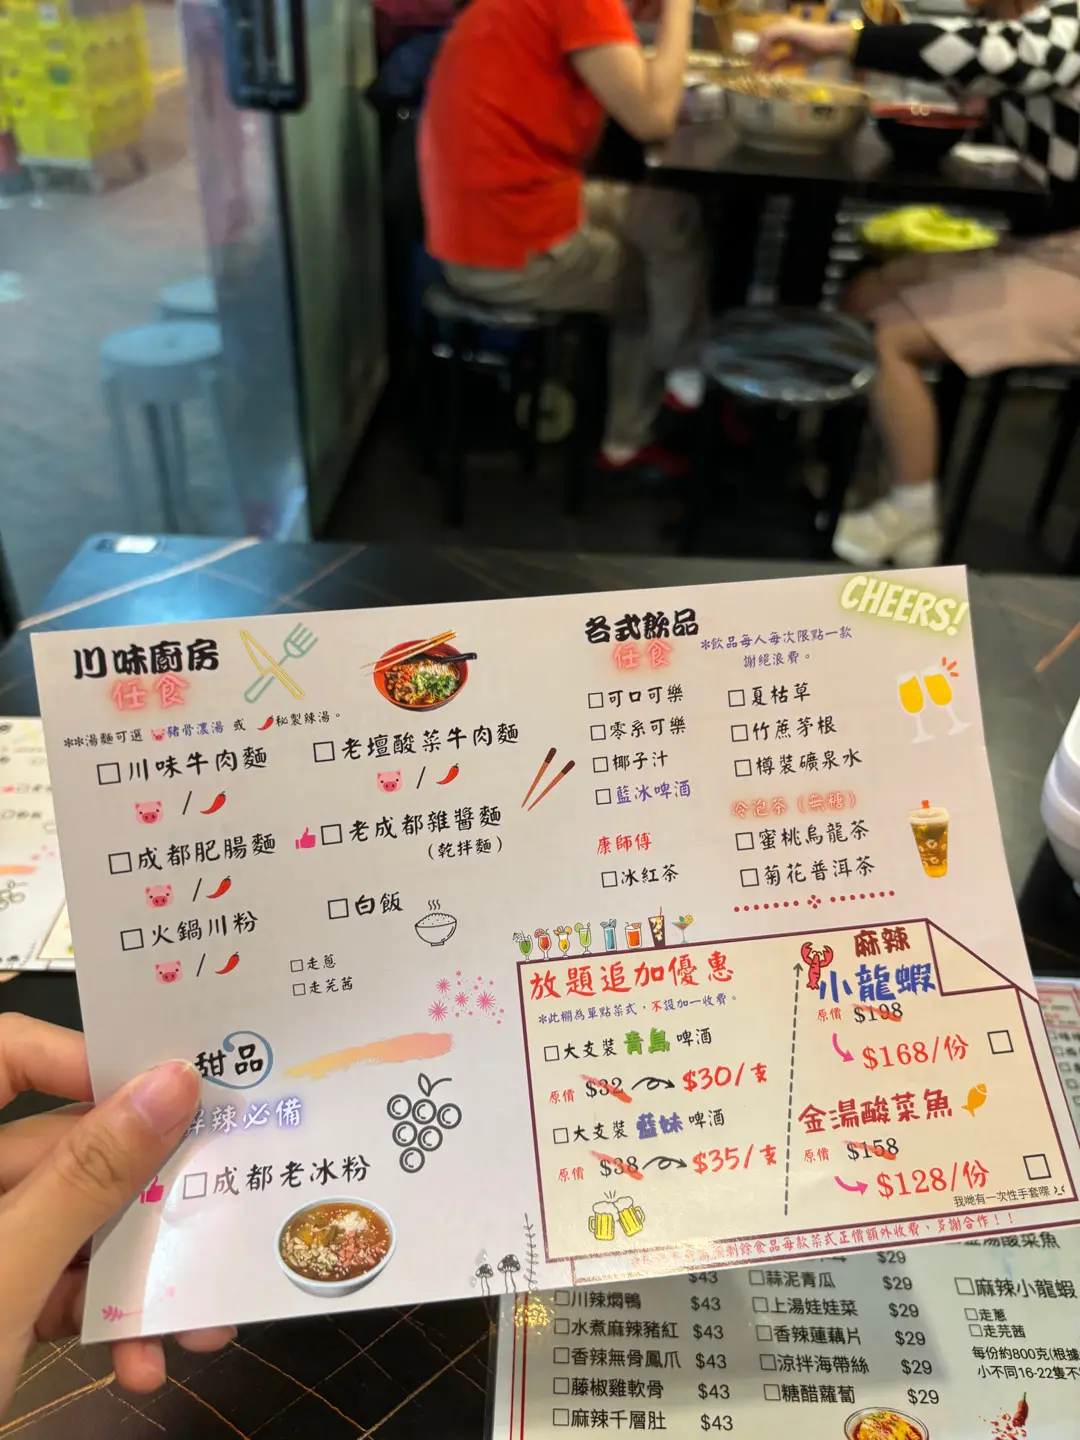 川味廚房
任食
**湯麵可選 豬骨濃湯 或 秘製辣湯。
□川味牛肉麵
/
□老壇酸菜牛肉麵
/
□成都肥腸麵
/
□老成都雜醬麵
(乾拌麵)
□火鍋川粉
/
□白飯
□走蔥
□走芫茜
甜品
解辣必備
□成都老冰粉
CHEERS!
各式飲品
任食
*飲品每人每次限點一款
謝絕浪費。
□可口可樂
□零系可樂
□椰子汁
□藍冰啤酒
康師傅
□冰紅茶
□夏枯草
□竹蔗茅根
□樽裝礦泉水
冷泡茶（無糖）
□蜜桃烏龍茶
□菊花普洱茶
放題追加優惠
*此欄為單點菜式，不設加一收費。
□大支裝 青島 啤酒
原價 $32 $30/支
□大支裝 藍妹 啤酒
原價 $38 $35/支
麻辣
小龍蝦
原價 $198
$168/份 □
金湯酸菜魚
原價 $158
$128/份 □
我哋有一次性手套㗎
剩餘食品每款菜式正價額外收費，多謝合作！！
$43
□川辣燜鴨 $43
□水煮麻辣豬紅 $43
□香辣無骨鳳爪 $43
□藤椒雞軟骨 $43
□麻辣千層肚 $43
$29
□蒜泥青瓜 $29
□上湯娃娃菜 $29
□香辣蓮藕片 $29
□涼拌海帶絲 $29
□糖醋蘿蔔 $29
金湯酸菜魚
□麻辣小龍蝦
□走蔥
□走芫茜
每份約800克(根據
小不同16-22隻不